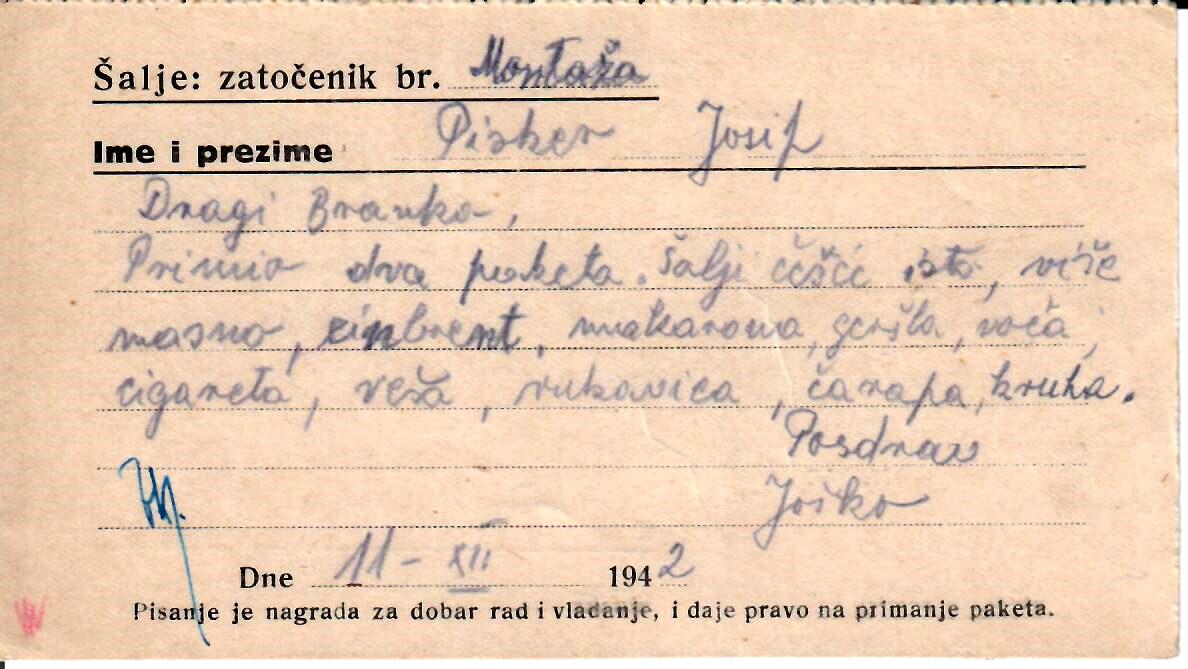 Šalje: zatočenik br. Montaža
Ime i prezime Pisker Josip
Dragi Branko,
Primio dva paketa. Šalji češće isto, više
masno, einbrent, makarona, geršla, voća,
cigareta, veša, rukavica, čarapa, kruha.
Posdrav
Joško
Dne 11-XII 1942
Pisanje je nagrada za dobar rad i vladanje, i daje pravo na primanje paketa.